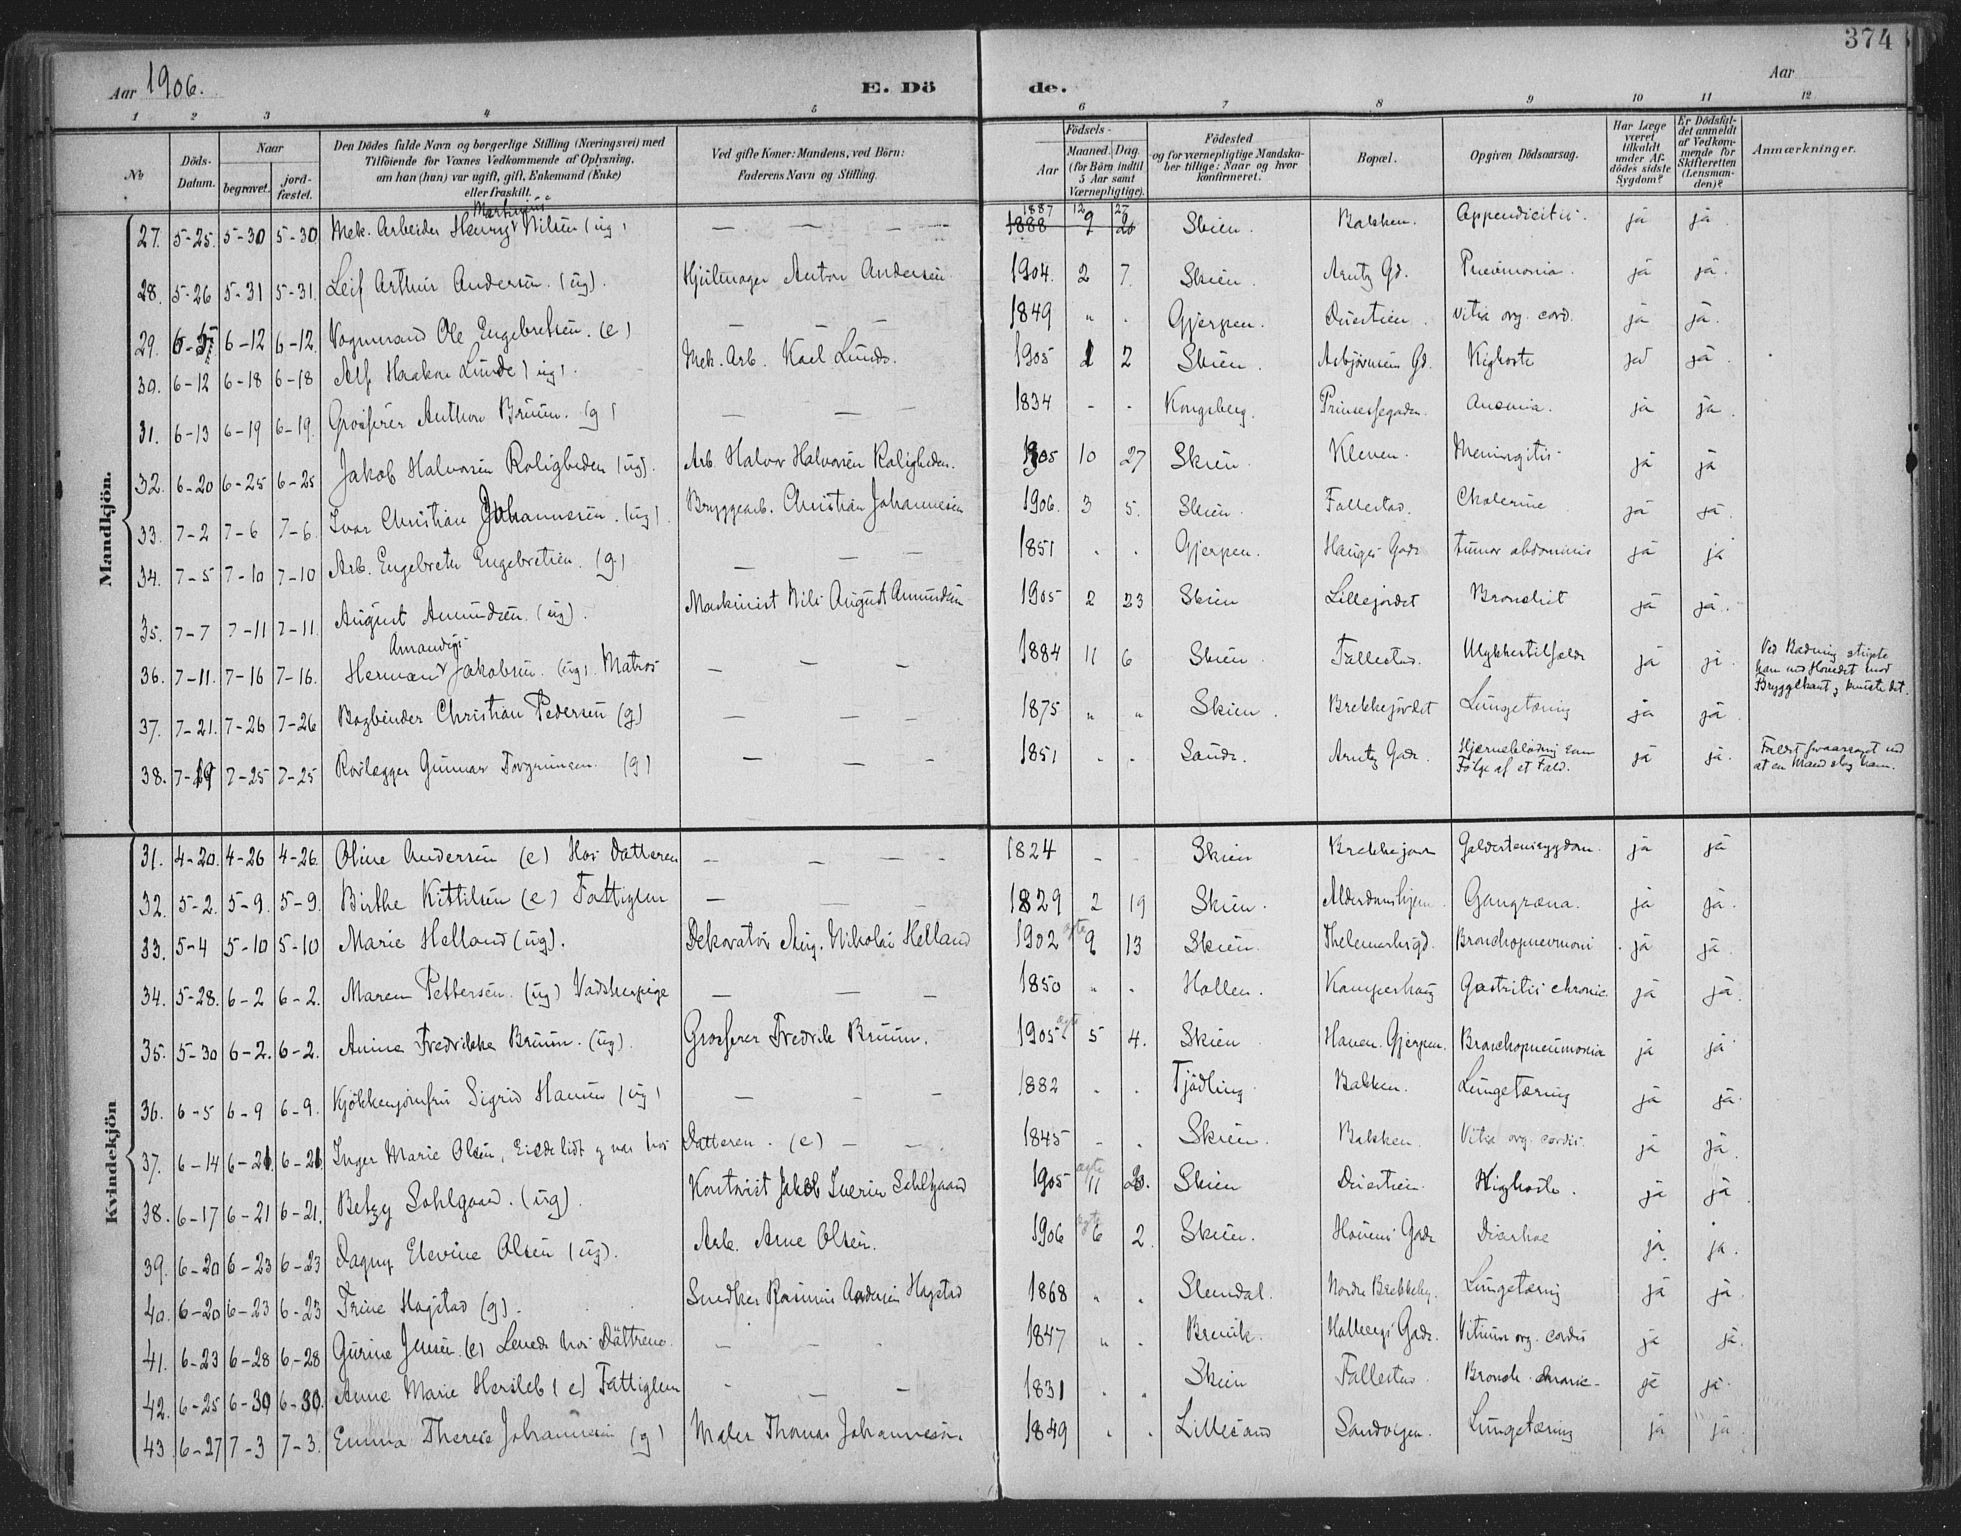 374
Aar 1906. E. Dö de. Aar
1 2 3 4 5 6 7 8 9 10 11 12
No
Döds-Datum.
Naar
begravet.
jord-fæstet.
Den Dödes fulde Navn og borgerlige Stilling (Næringsvei) med
Tilföiende for Voxnes Vedkommende af Oplysning,
om han (hun) var ugift, gift, Enkemand (Enke)
eller fraskilt.
Ved gifte Koner: Mandens, ved Börn:
Faderens Navn og Stilling.
Födsels-
Aar
Maaned. Dag.
(for Börn indtil
5 Aar samt
Værnepligtige).
Födested
og for værnepligtige Mandska-
ber tillige: Naar og hvor
konfirmeret.
Bopæl.
Opgiven Dödsaarsag.
Har Læge
været
tilkaldt
under Af-
dödes sidste
Sygdom?
Er Dödsfal-
det anmeldt
af Vedkom-
mende for
Skifteretten
(Lensman-
den)?
Anmærkninger.
Mandkjön.
Martinius 1887 12 27
27. 5-25. 5-30 5-30 Mek. Arbeider Henry Nilsen (ug) — — — — 1888 Skien. Bakken. Appendicitis. ja ja.
28. 5-26 5-31 5-31. Leif Arthur Andersen. (ug). Hjulmager Anton Andersen 1904. 2 7. Skien. Arntz Gd. Pneumonia. ja ja.
29. 6-5 6-12 6-12. Vognmand Ole Engebretsen. (e) — — — 1849 " . Gjerpen. Duestien. Vitia org. cord. ja ja.
30. 6-12 6-18 6-18 Alf Haakon Lunde (ug). Mek. Arb. Karl Lunde. 1905 1 2 Skien. Asbjörnsens Gd. Kighoste ja ja
31. 6-13 6-19 6-19. Grosserer Anthon Bruun. (g) — — — 1834 - - Kongsberg. Prinsessegaden. Anæmia. ja ja.
32. 6-20 6-25 6-25 Jakob Halvorsen Roligheden (ug). Arb. Halvor Halvorsen Roligheden. 1905 10 27 Skien. Kleven. Meningitis. ja ja
33. 7-2 7-6 7-6. Ivar Christian Johannesen. (ug). Bryggearb. Christian Johannesen 1906. 3 5. Skien. Fallestad. Cholerine ja ja.
34. 7-5 7-10 7-10 Arb. Engebreth Engebretsen. (g) — — — 1851 . . Gjerpen. Hauges Gade tumor abdominis ja ja
35. 7-7 7-11 7-11. August Amundsen. (ug). Maskinist Nils August Amundsen 1905 2 23 Skien Lillejordet Bronchit ja ja.
36. 7-11. 7-16 7-16. Herman Jakobsen. (ug). Matros — — — 1884 11 6 Skien. Fallestad. Ulykkestilfælde ja ja. Ved Badning stupte
han med Hovedet mod
Bryggekant &
37. 7-21. 7-26 7-26 Bogbinder Christian Pedersen (g) — — — 1875 " " Skien. Brekkejordet Lungetæring ja ja.
38. 7-19 7-25 7-25 Gunnar (g) — — — 1851 . . Sande. Arntz Gade. Hjerneblödning som
Fölge af et Fald. ja ja. Faldet foraarsaget ved
at en Mand slog ham.
Kvindekjön
31. 4-20. 4-26 4-26. Oline Andersen (e) Hos Datteren — — — — 1824 - - Skien Galdestensygdom. ja ja
32. 5-2. 5-9. 5-9. Birthe Kittilsen (e) Fattiglem — — — 1829 2 19 Skien. Alderdomshjem. Gangræna. ja ja.
33. 5-4 5-10 5-10 Marie Helland (ug). Dekoratör Aug. Nikolai Helland 1902 ægte 13 Skien. Thelemarksgd. Bronchopneumoni ja ja.
34. 5-28. 6-2 6-2. Maren Pettersen. (ug) Vadskepige — — — 1850 " . Hollen. Kamperhaug Gastritis chronic. ja ja.
35. 5-30 6-2. 6-2. Anina Fredrikke Bruun. (ug). Grosserer Fredrik Bruun. 1905 ægte 5 4. Skien Gjerpen. Bronchopneumonia ja ja.
36. 6-5 6-9 6-9. Kjökkenjomfru Sigrid Hansen (ug) — — — 1882 . . Tjödling Bakken. Lungetæring ja ja.
37. 6-14 6-21. 6-21. Inger Marie Olsen, hos Datteren. (e) — — 1845 - . Skien. Bakken. Vitia org. cordis. ja ja.
38. 6-17 6-21 6-21. Betzy Sohlgaard. (ug). Jakob Sverin Sohlgaard 1905 ægte 11 Skien Duestien. Kighoste. ja ja
39. 6-20 6-23 6-23 Dagny Elevine Olsen (ug). Arb. Arne Olsen. 1906 ægte 6 2. Skien. Gade Diarhoe ja. ja.
40. 6-20 6-23 6-23 Trine Hagstad (g). Snedker Rasmus Andersen Hagstad 1868 " . Slemdal. Nordre Brekkeby. Lungetæring ja ja.
41. 6-23 6-28 6-28 Gurine Jensen (e) Levede hos Döttrene. — — — 1847 " . Brevik. Holbergs Gade. Vitium org. cordis ja ja.
42. 6-25 6-30 6-30. Anne Marie Hersleb (e) Fattiglem — — — 1831 . . Skien Fallestad Bronch. chronic. ja ja.
43. 6-27 7-3 7-3. Emma Therese Johannesen (g) Maler Thomas Johannesen. 1849 . . Lillesand Sandvigen. Lungetæring ja ja.